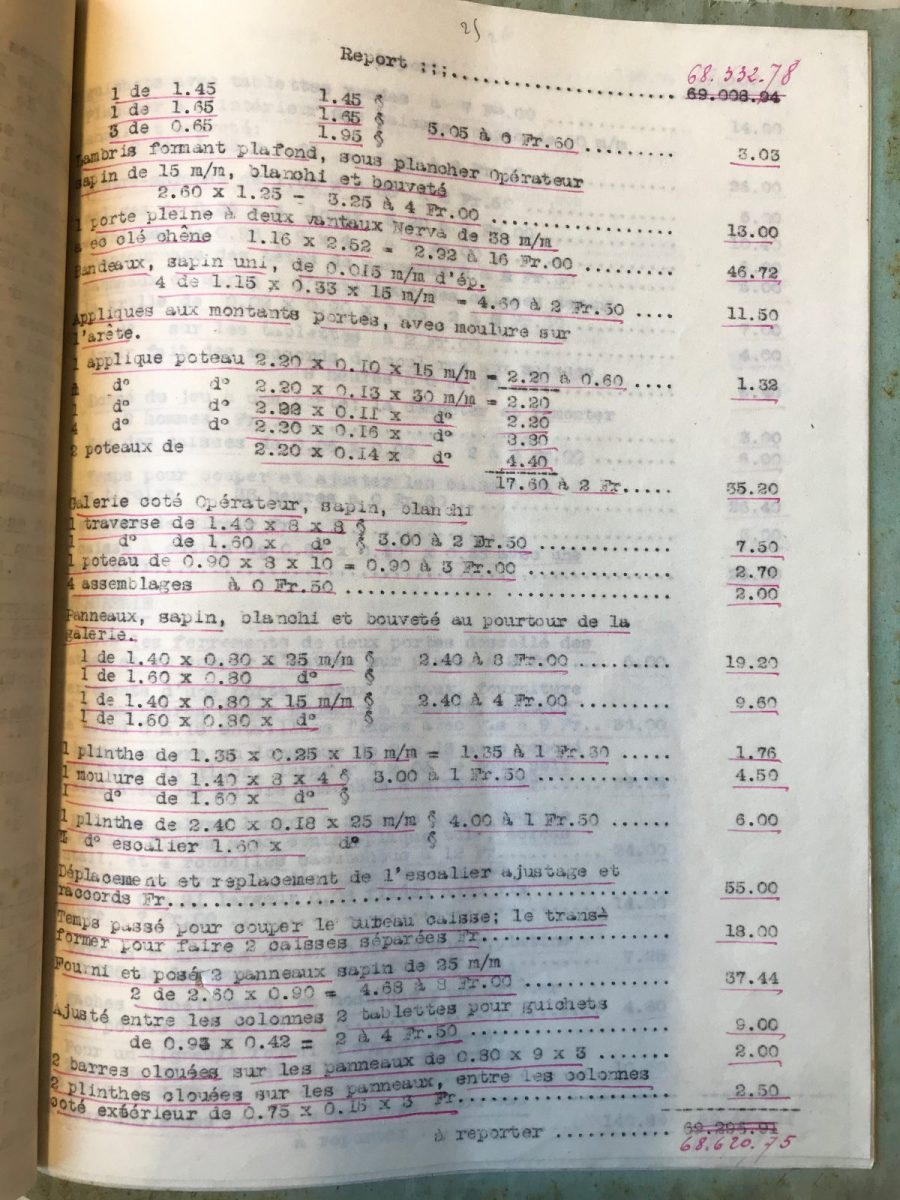 25
Report :;;.............................. 68.332.78
69.008.94
1 de 1.45 1.45 §
1 de 1.65 1.65 §
3 de 0.65 1.95 § 5.05 à 6 Fr.60 ......... 3.03
Lambris formant plafond, sous plancher Opérateur
sapin de 15 m/m, blanchi et bouveté
2.60 x 1.25 - 3.25 à 4 Fr.00 .................. 13.00
1 porte pleine à deux vantaux Nerva de 38 m/m
avec clé chêne 1.16 x 2.52 = 2.92 à 16 Fr.00 ......... 46.72
Bandeaux, sapin uni, de 0.015 m/m d'ép.
4 de 1.15 x 0.33 x 15 m/m = 4.60 à 2 Fr.50 .... 11.50
Appliques aux montants portes, avec moulure sur
l'arête.
1 applique poteau 2.20 x 0.10 x 15 m/m = 2.20 à 0.60 .... 1.32
d° d° 2.20 x 0.13 x 30 m/m = 2.20
1 d° d° 2.20 x 0.11 x d° 2.20
4 d° d° 2.20 x 0.16 x d° 8.80
2 poteaux de 2.20 x 0.14 x d° 4.40
17.60 à 2 Fr..... 35.20
Galerie coté Opérateur, sapin, blanchi
1 traverse de 1.40 x 8 x 8 §
1 d° de 1.60 x d° § 3.00 à 2 Fr.50 .............. 7.50
1 poteau de 0.90 x 8 x 10 = 0.90 à 3 Fr.00 ............... 2.70
4 assemblages à 0 Fr.50 .............. ................. 2.00
Panneaux, sapin, blanchi et bouveté au pourtour de la
galerie.
1 de 1.40 x 0.80 x 25 m/m § 2.40 à 8 Fr.00 .......... 19.20
1 de 1.60 x 0.80 d° §
1 de 1.40 x 0.80 x 15 m/m § 2.40 à 4 Fr.00 .......... 9.60
1 de 1.60 x 0.80 x d° §
1 plinthe de 1.35 x 0.25 x 15 m/m = 1.35 à 1 Fr.30 ...... 1.76
1 moulure de 1.40 x 8 x 4 § 3.00 à 1 Fr.50 .............. 4.50
1 d° de 1.60 x d° §
1 plinthe de 2.40 x 0.18 x 25 m/m § 4.00 à 1 Fr.50 ...... 6.00
d° escalier 1.60 x d° §
Déplacement et replacement de l'escalier ajustage et
raccords Fr................................................ 55.00
Temps passé pour couper le bureau caisse; le trans-
former pour faire 2 caisses séparées Fr.................. 18.00
Fourni et posé 2 panneaux sapin de 25 m/m
2 de 2.60 x 0.90 = 4.68 à 8 Fr.00 ............... 37.44
Ajusté entre les colonnes 2 tablettes pour guichets
de 0.93 x 0.42 = 2 à 4 Fr.50 .................... 9.00
2 barres clouées sur les panneaux de 0.80 x 9 x 3 ....... 2.00
2 plinthes clouées sur les panneaux, entre les colonnes
coté extérieur de 0.75 x 0.15 x 3 Fr..................... 2.50
à reporter ........... 69.296.91
68.620.75